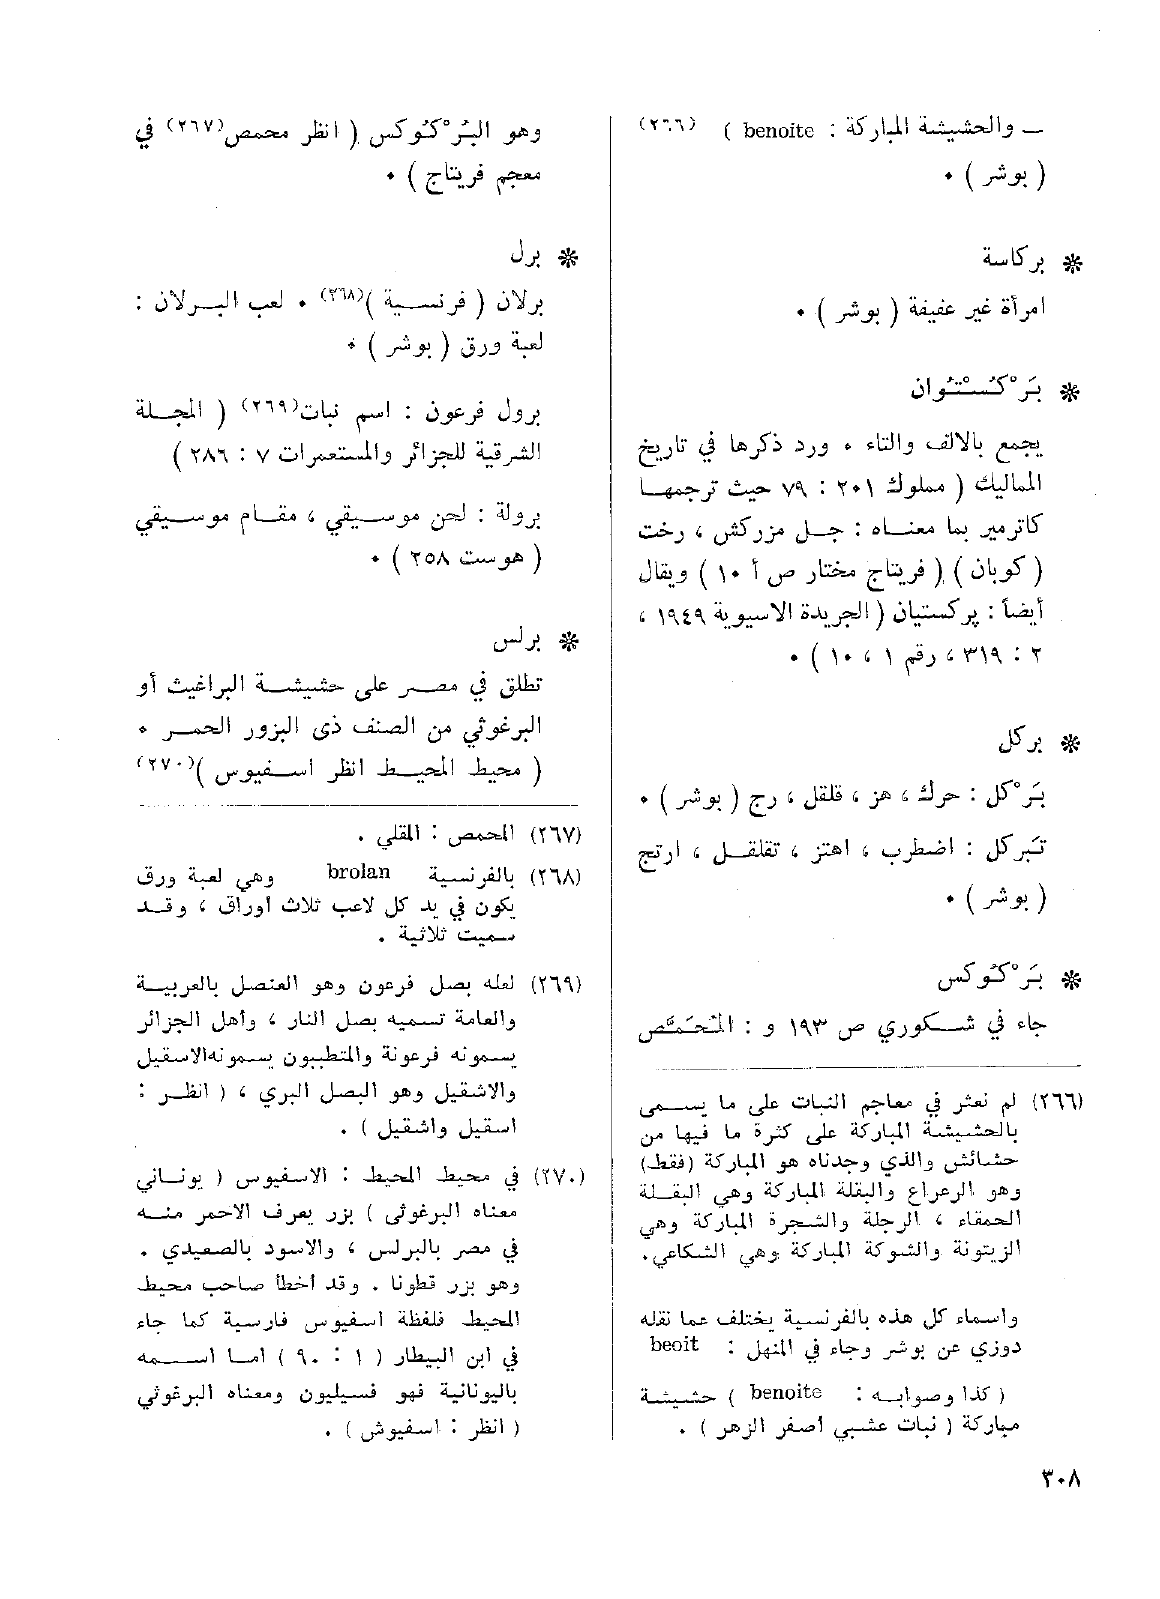 — والحشيشة المباركة : benoite ) (٢٦٦)
( بوشر ) ٠
❋ بركاسة
امرأة غير عفيفة ( بوشر ) ٠
❋ بَرْكُسْتُوان
يجمع بالالف والتاء ٠ ورد ذكرها في تاريخ
المماليك ( مملوك ٢٠١ : ٧٩ حيث ترجمها
كاترمير بما معناه : جل مزركش ، رخت
( كوبان ) ( فريتاج مختار ص أ ١٠ ) ويقال
أيضاً : پركستيان ( الجريدة الاسيوية ١٩٤٩ ،
٢ : ٣١٩ ، رقم ١ ، ١٠ ) ٠
❋ بركل
بَرْكل : حرك ، هز ، قلقل ، رج ( بوشر ) ٠
تَبركل : اضطرب ، اهتز ، تقلقل ، ارتج
( بوشر ) ٠
❋ بَرْكُوكس
جاء في شكوري ص ١٩٣ و : المُحَمَّص
(٢٦٦) لم نعثر في معاجم النبات على ما يسمى
بالحشيشة المباركة على كثرة ما فيها من
حشائش والذي وجدناه هو المباركة (فقط)
وهو الرعراع والبقلة المباركة وهي البقلة
الحمقاء ، الرجلة والشجرة المباركة وهي
الزيتونة والشوكة المباركة وهي الشكاعي.
واسماء كل هذه بالفرنسية يختلف عما نقله
دوزي عن بوشر وجاء في المنهل : beoit
( كذا وصوابه : benoite ) حشيشة
مباركة ( نبات عشبي أصفر الزهر ) .
وهو البُرْكُوكس ( انظر محمص(٢٦٧) في
معجم فريتاج ) ٠
❋ برل
برلان ( فرنسية )(٢٦٨) ٠ لعب البرلان :
لعبة ورق ( بوشر ) ٠
برول فرعون : اسم نبات(٢٦٩) ( المجلة
الشرقية للجزائر والمستعمرات ٧ : ٢٨٦ )
برولة : لحن موسيقي ، مقام موسيقي
( هوست ٢٥٨ ) ٠
❋ برلس
تطلق في مصر على حشيشة البراغيث أو
البرغوثي من الصنف ذى البزور الحمر ٠
( محيط المحيط انظر اسفيوس )(٢٧٠)
(٢٦٧) المحمص : المقلي .
(٢٦٨) بالفرنسية brolan وهي لعبة ورق
يكون في يد كل لاعب ثلاث أوراق ، وقد
سميت ثلاثية .
(٢٦٩) لعله بصل فرعون وهو العنصل بالعربية
والعامة تسميه بصل النار ، وأهل الجزائر
يسمونه فرعونة والمتطببون يسمونهالاسقيل
والاشقيل وهو البصل البري ، ( انظر :
اسقيل واشقيل ) .
(٢٧٠) في محيط المحيط : الاسفيوس ( يوناني
معناه البرغوثى ) بزر يعرف الاحمر منه
في مصر بالبرلس ، والاسود بالصعيدي .
وهو بزر قطونا . وقد أخطأ صاحب محيط
المحيط فلفظة اسفيوس فارسية كما جاء
في ابن البيطار ( ١ : ٩٠ ) اما اسمه
باليونانية فهو فسيليون ومعناه البرغوثي
( انظر : اسفيوش ) .
٣٠٨